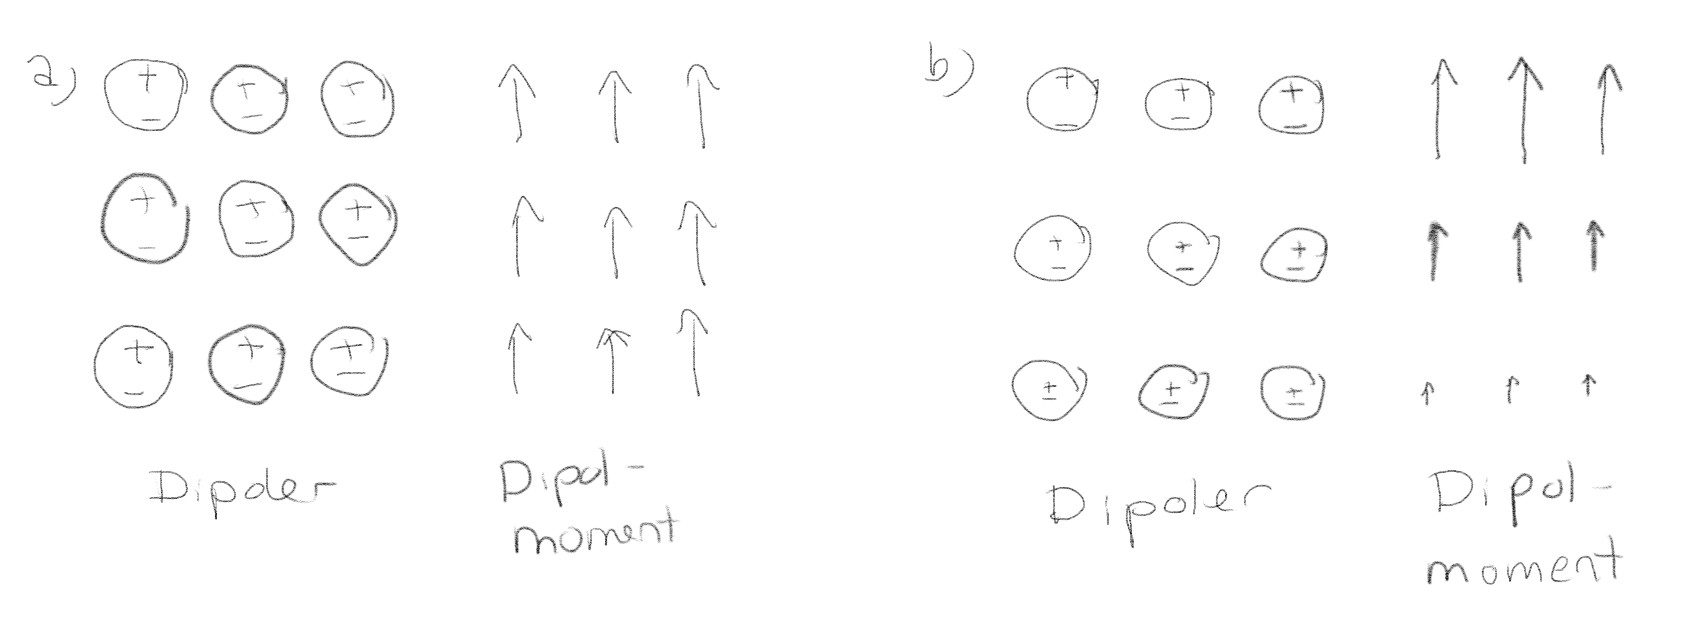 a)
+ + +
− − −
+ + +
− − −
+ + +
− − −
Dipoler
Dipol-
moment
b)
+ + +
− − −
+ + +
− − −
+ + +
− − −
Dipoler
Dipol-
moment